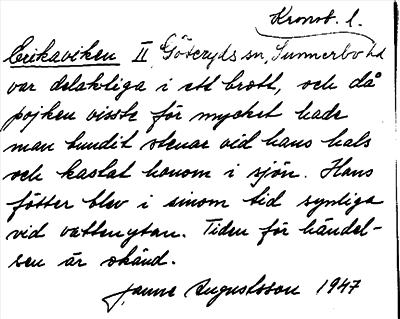 Kronob. l.
Erikaviken II, Göteryds sn, Sunnerbo hd
var delaktiga i ett brott, och då
pojken visste för mycket hade
man bundit stenar vid hans hals
och kastat honom i sjön. Hans
fötter blev i sinom tid synliga
vid vattenytan. Tiden för händel-
sen är okänd.
Janne Augustsson 1947